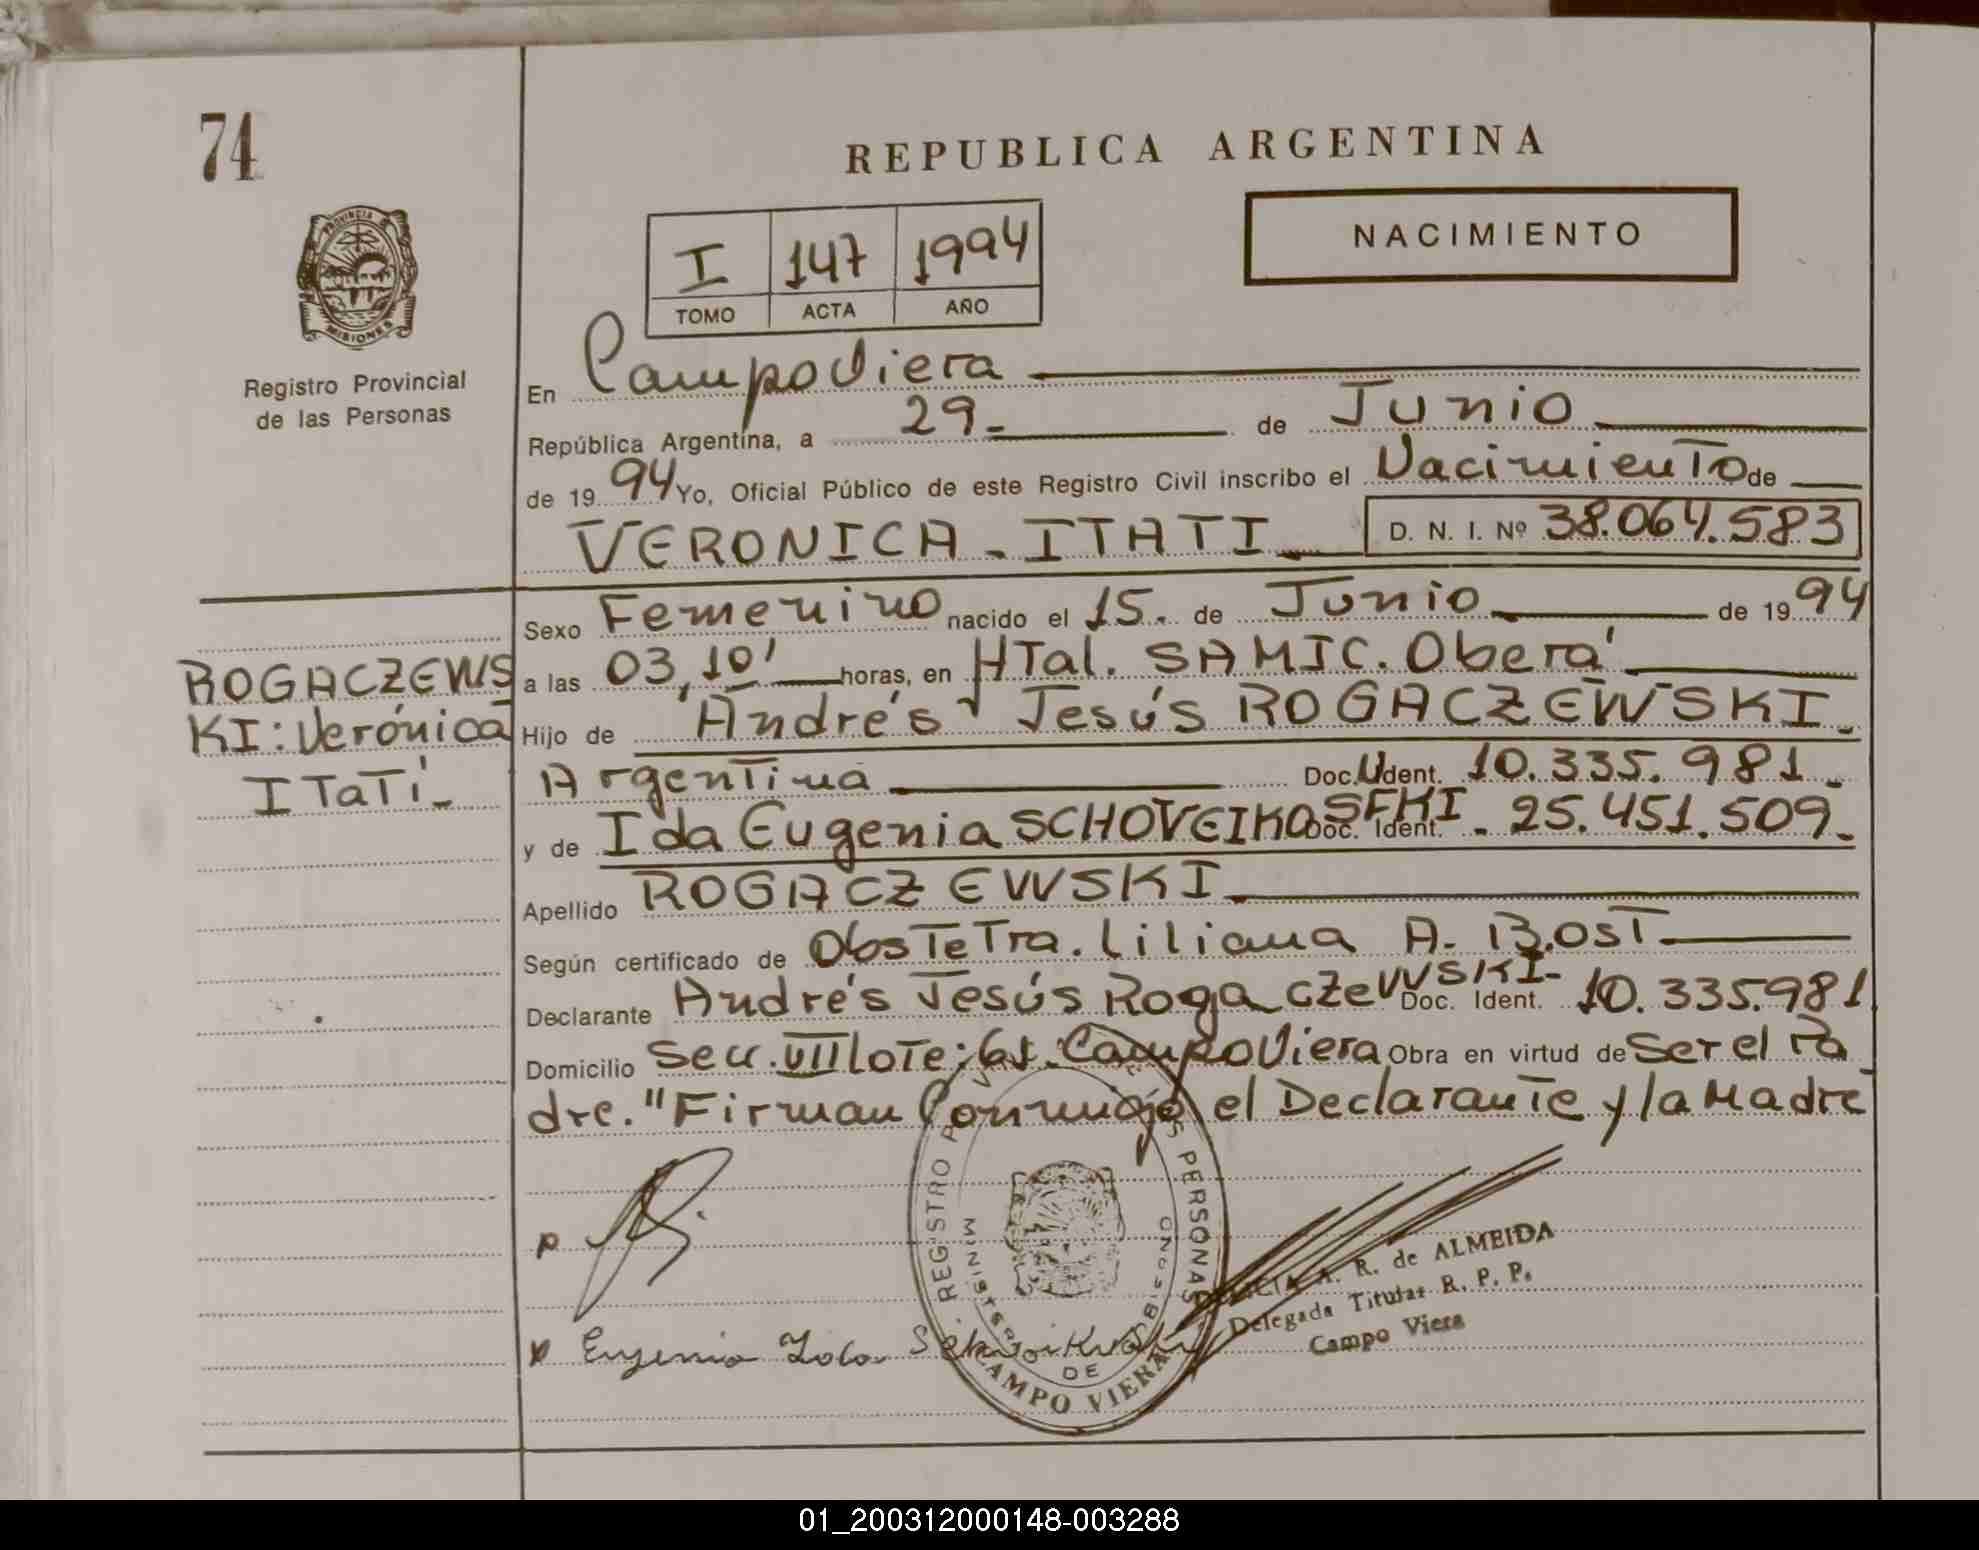 74
REPUBLICA ARGENTINA
NACIMIENTO
I 147 1994
TOMO ACTA AÑO
PROVINCIA DE
MISIONES
Registro Provincial
de las Personas
En Campo Viera
República Argentina, a 29- de Junio
de 19 94 Yo, Oficial Público de este Registro Civil inscribo el Nacimiento de
VERONICA - ITATI D. N. I. Nº 38.064.583
Sexo Femenino nacido el 15. de Junio de 19 94
a las 03,10' horas, en HTal. SAMIC. Oberá
Hijo de Andrés Jesús ROGACZEWSKI-
Argentina Doc. Ident. 10.335.981-
y de Ida Eugenia SCHOVEIKOSFKI Doc. Ident. - 25.451.509-
Apellido ROGACZEWSKI
Según certificado de ObsTeTra. Liliana A. BOST
Declarante Andrés Jesús RogaczeWSKI- Doc. Ident. 10.335.981
Domicilio Secc. VIII LoTe: 61. Campo Viera Obra en virtud de Ser el Pa
dre. "Firman Conmigo el Declarante y la Madre
ROGACZEWS
KI: Verónica
ITaTí-
REGISTRO DE LAS PERSONAS
MINISTERIO DE GOBIERNO
CAMPO VIERA
A. R. de ALMEIDA
Delegada Titular R. P. P.
Campo Viera
Eugenia Ida
01_200312000148-003288